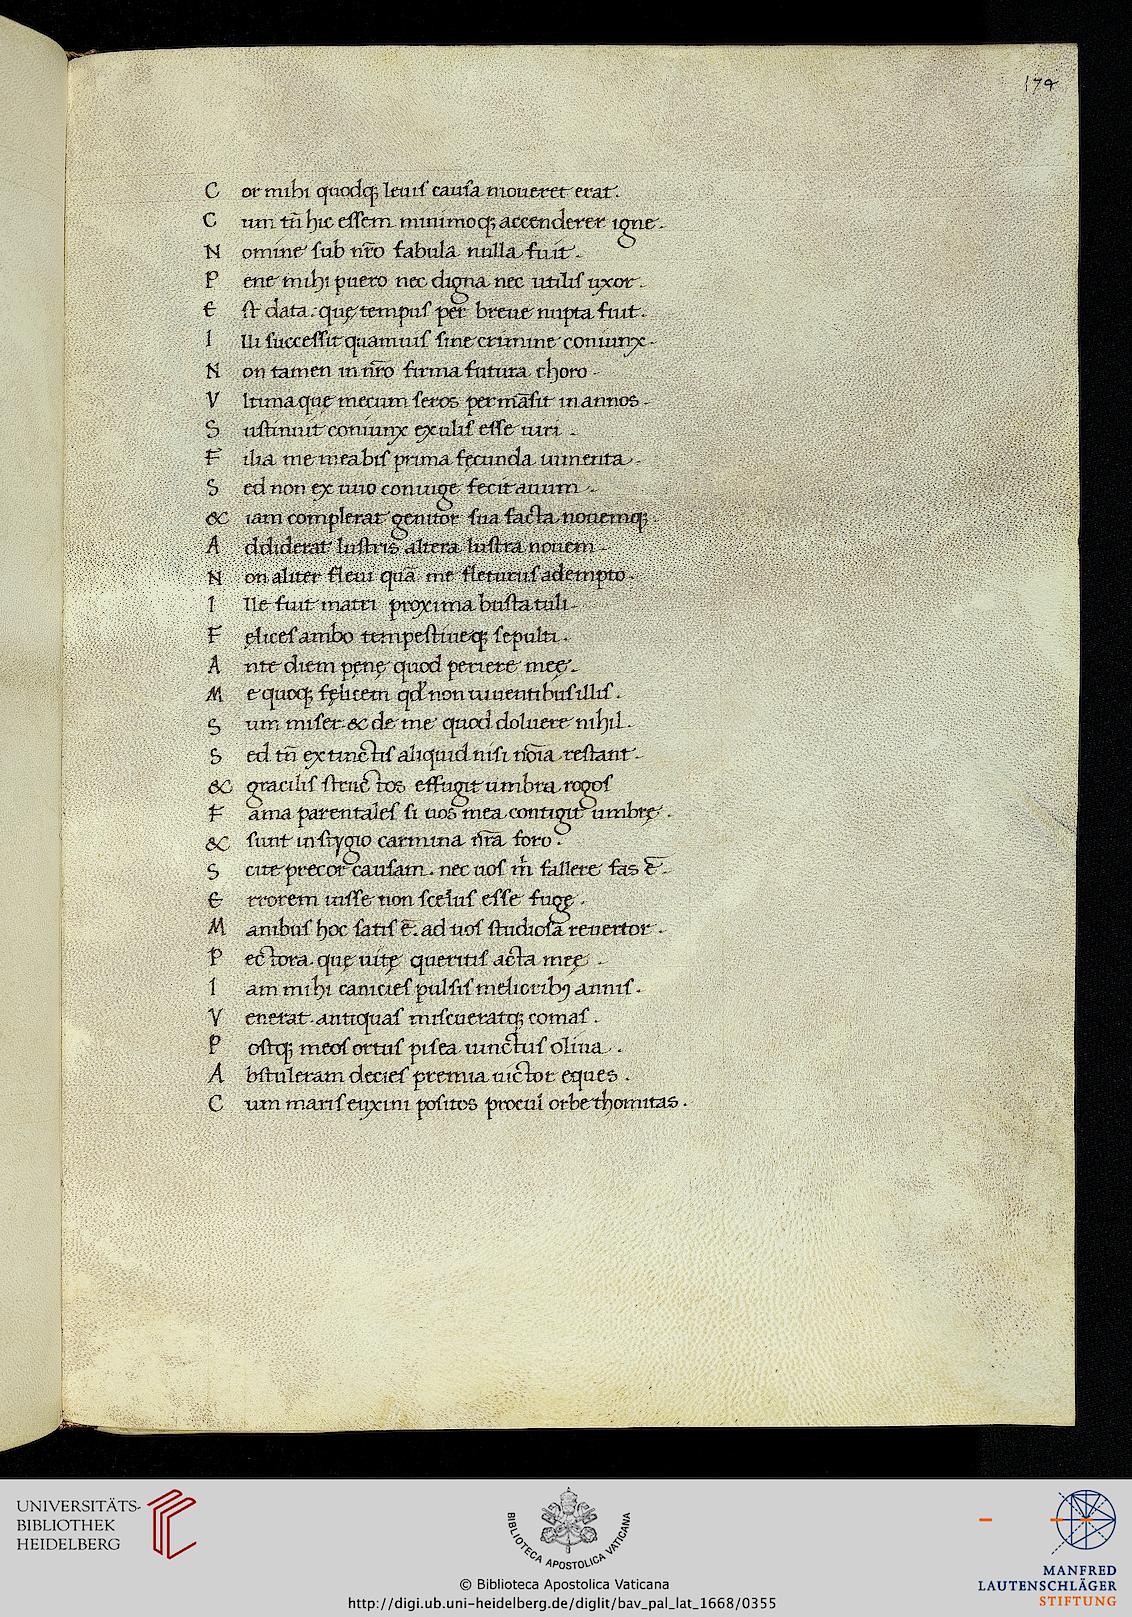 174
C or mihi quodq; leuis causa moueret erat.
C um tn̄ hic essem minimoq; accenderer igne.
N omine sub nr̄o fabula nulla fuit.
P ene mihi puero nec digna nec utilis uxor.
E st data. quę tempus per breue nupta fuit.
I lli successit quamuis sine crimine coniunx.
N on tamen in nr̄o firma futura choro.
V ltima quę mecum seros permāsit in annos.
S ustinuit coniunx exulis esse uiri.
F ilia me mea bis prima fęcunda iuuenta.
S ed non ex uno coniuge fecit auum.
& iam complerat genitor sua facta nouemq;
A ddiderat lustris altera lustra nouem.
N on aliter fleui quā me fleturus adempto.
I lle fuit matri proxima busta tuli.
F ęlices ambo tempestiueq; sepulti.
A nte diem pęnę quod periere meę.
M e quoq; fęlicem qd' non uiuentibus illis.
S um miser. & de me quod doluere nihil.
S ed tn̄ extinctis aliquid nisi nōia restant.
& gracilis structos effugit umbra rogos
F ama parentales si uos mea contigit umbrę.
& sunt in stygio carmina nr̄a foro.
S cite precor causam. nec uos m̄ fallere fas ē.
E rrorem iusse non scelus esse fugę.
M anibus hoc satis ē. ad uos studiosa reuertor.
P ectora. quę uitę queritis acta meę.
I am mihi canicies pulsis melioribꝰ annis.
V enerat. antiquas miscueratq; comas.
P ostq; meos ortus pisea uinctus oliua.
A bstuleram decies premia uictor eques.
C um maris euxini positos procul orbe thomitas.
UNIVERSITÄTS-
BIBLIOTHEK
HEIDELBERG
BIBLIOTECA APOSTOLICA VATICANA
MANFRED
LAUTENSCHLÄGER
STIFTUNG
© Biblioteca Apostolica Vaticana
http://digi.ub.uni-heidelberg.de/diglit/bav_pal_lat_1668/0355